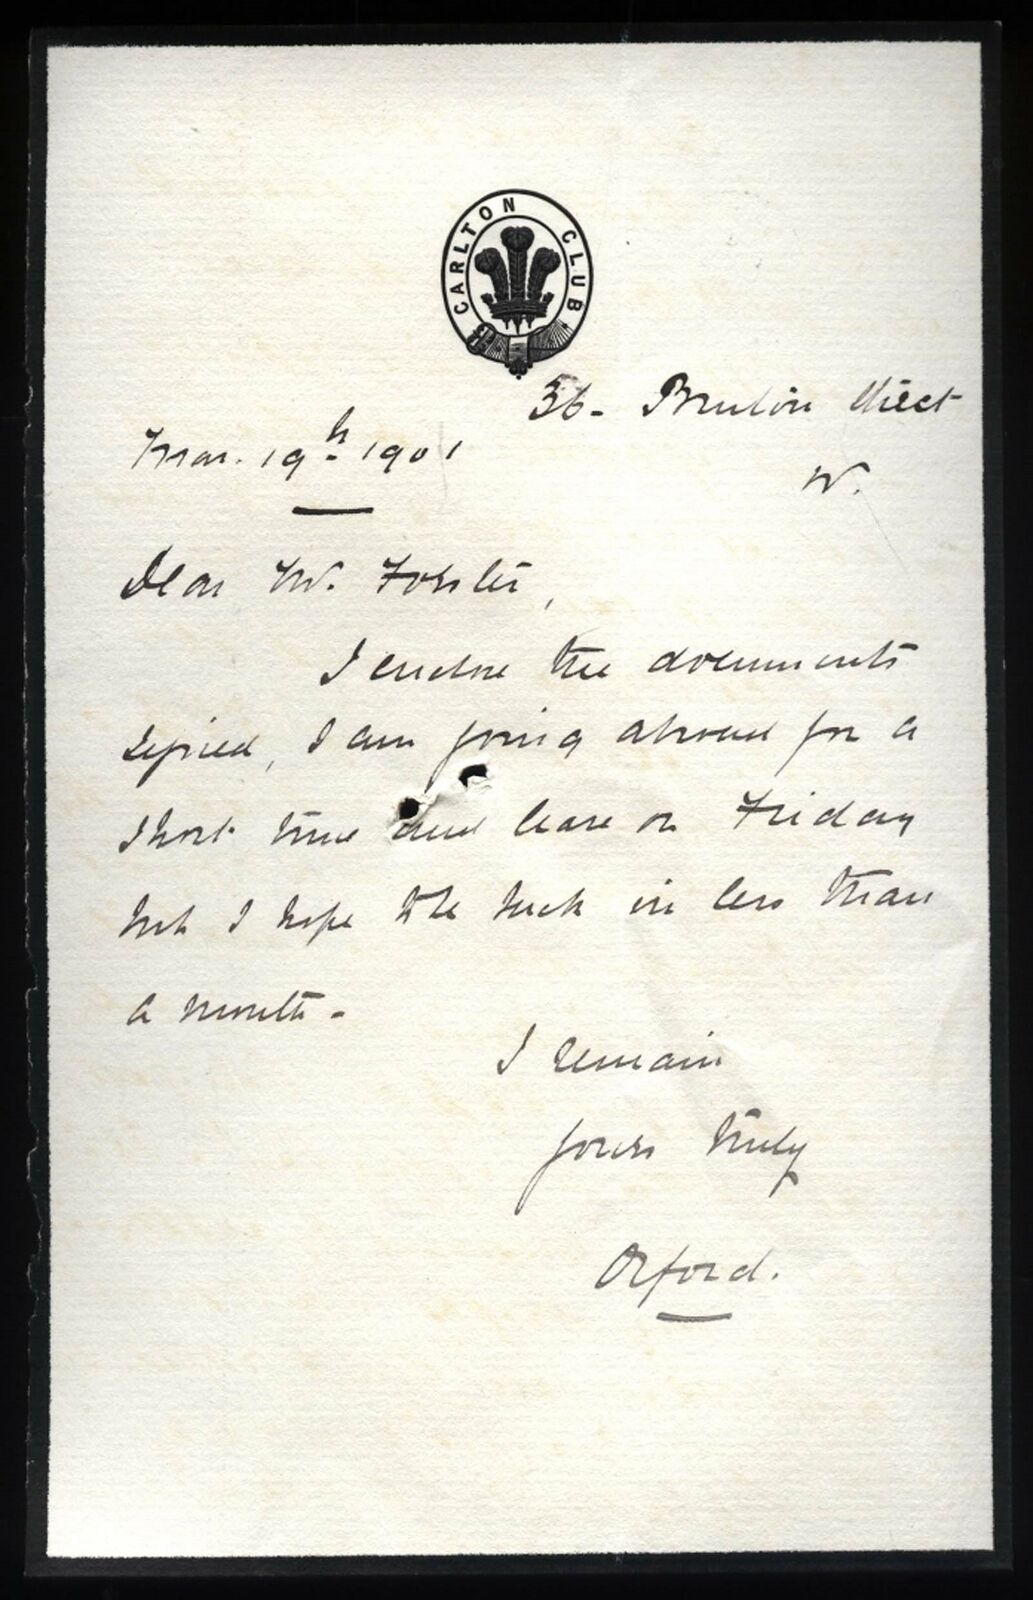 CARLTON CLUB
36- Bruton Street
W.
Mar. 19th 1901
Dear Mr. Forster,
I enclose the documents
signed, I am going abroad for a
short time and leave on Friday
but I hope to be back in less than
a month -
I remain
yours truly
Orford.